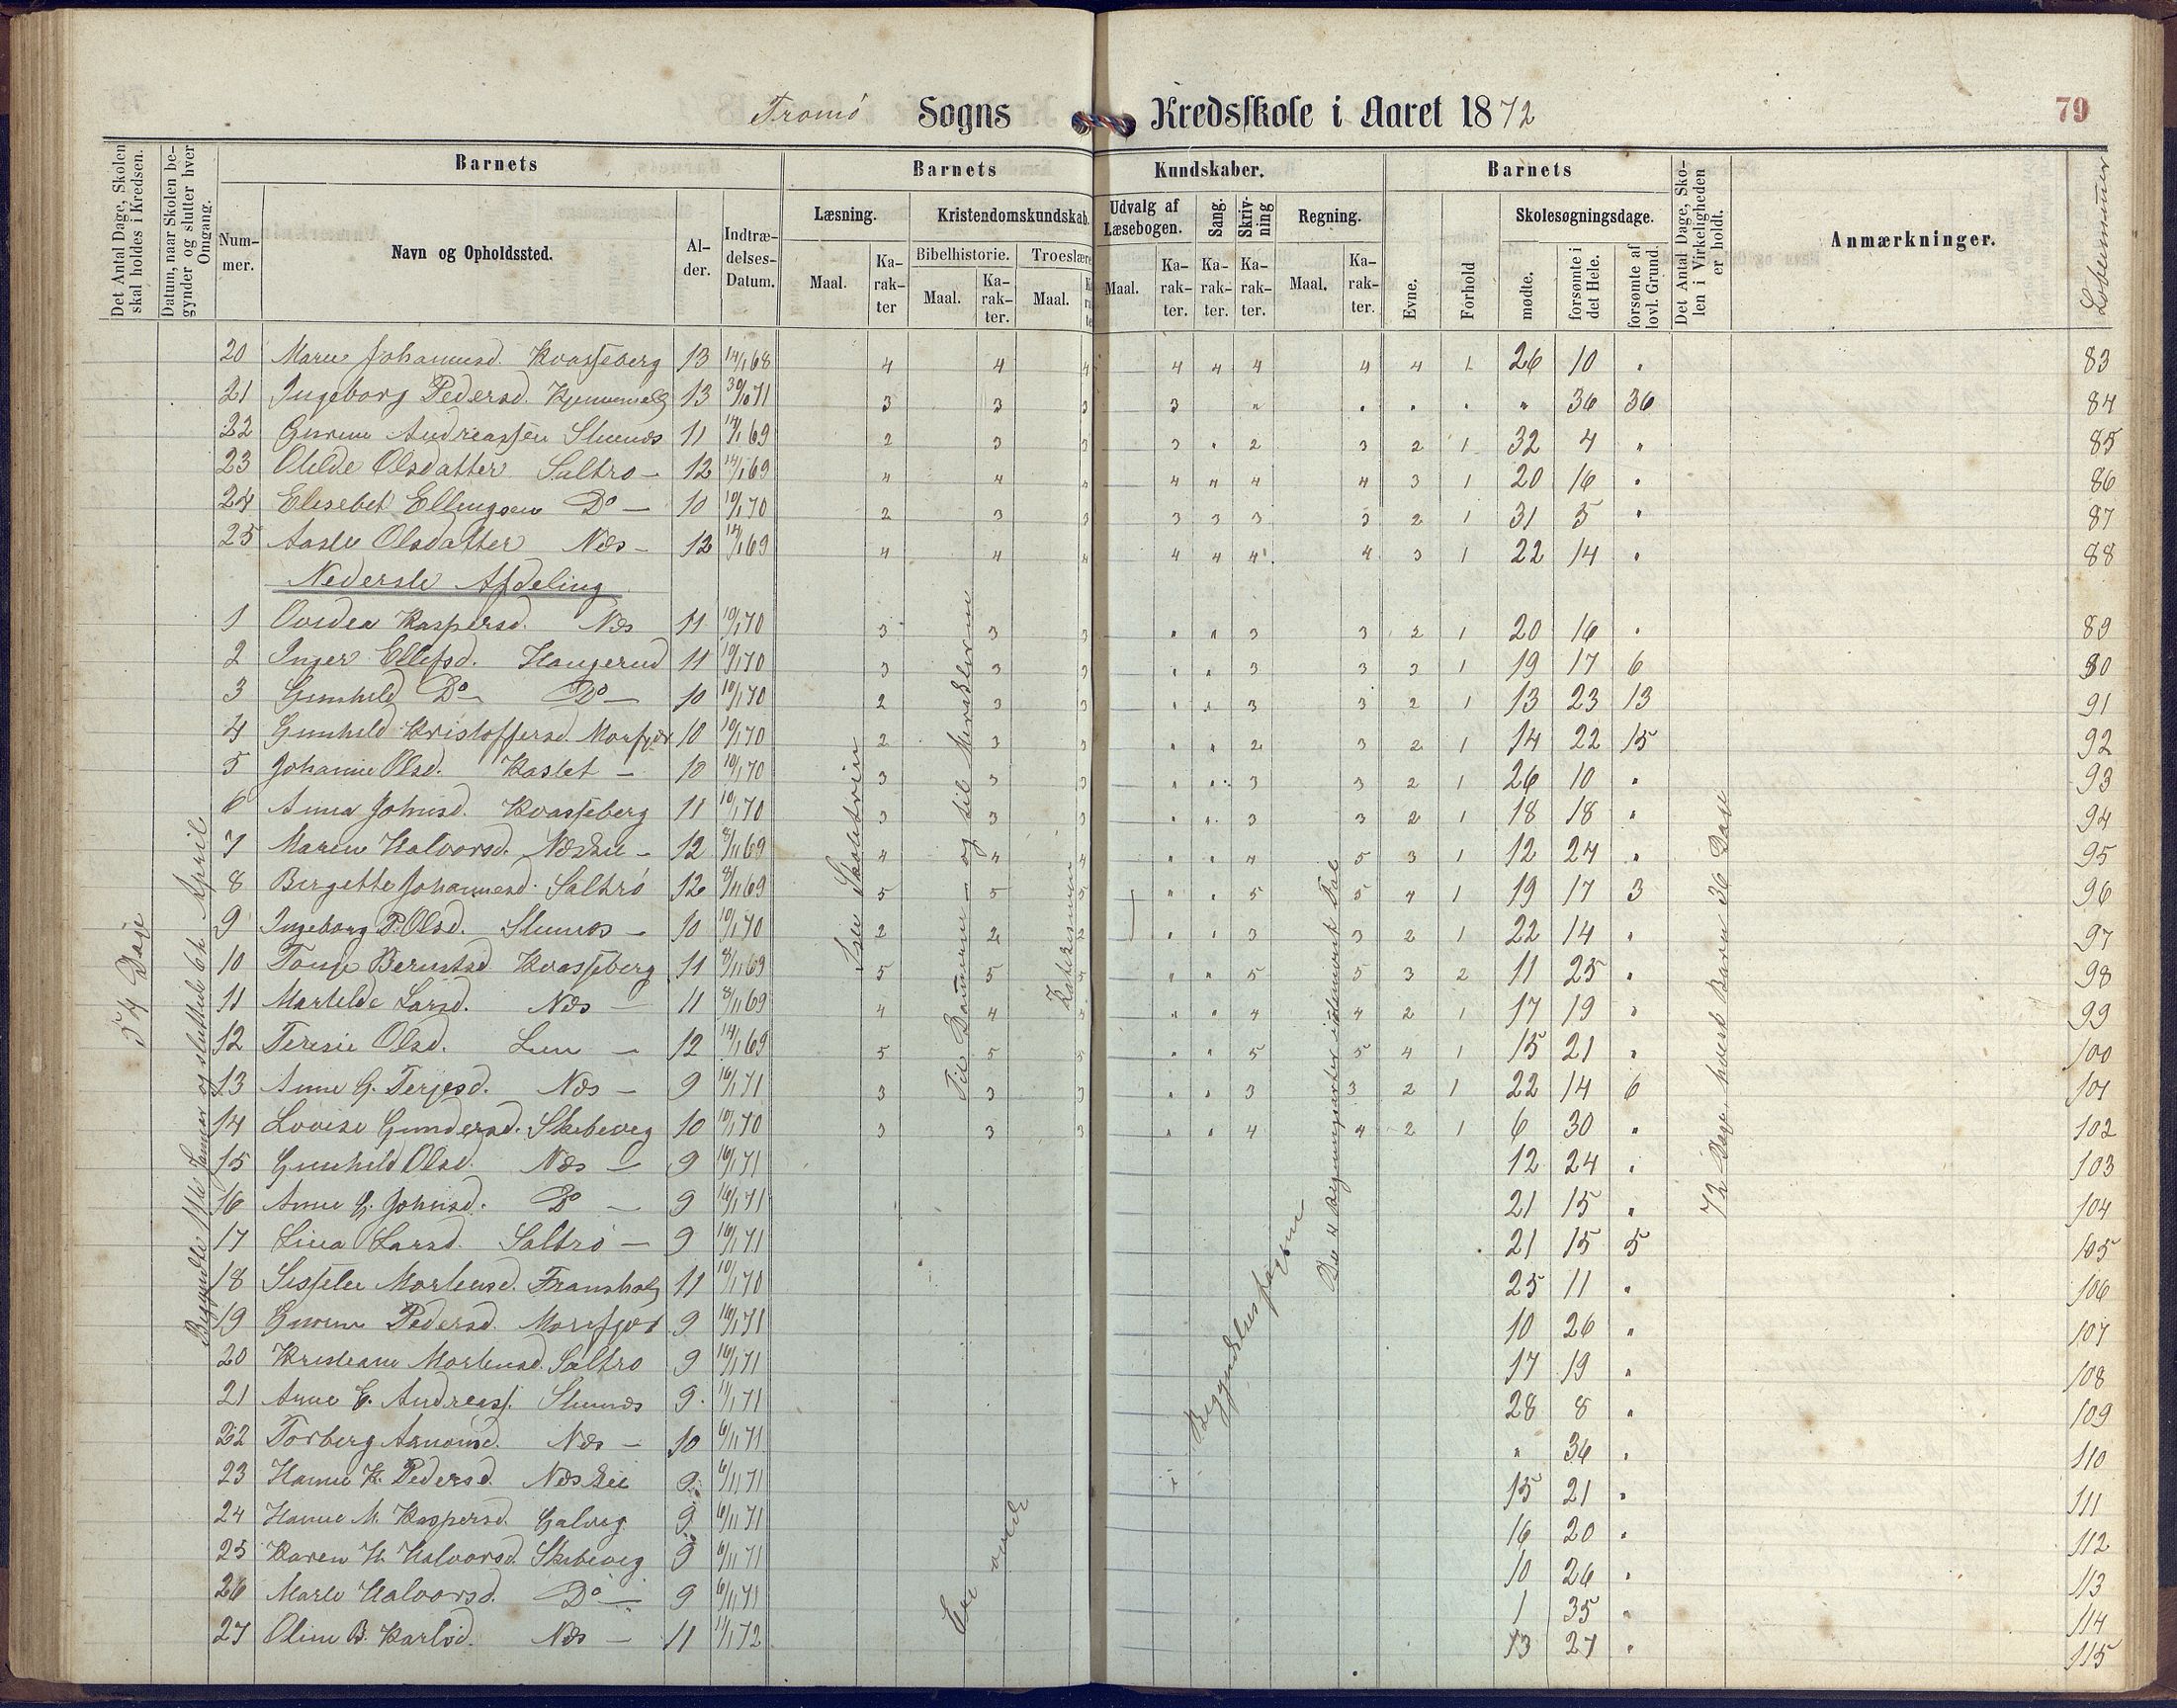 Tromö Sogns Kredsskole i Aaret 1872
79
Det Antal Dage, Skolen skal holdes i Kredsen.
Datum, naar Skolen begynder og slutter hver Omgang.
Barnets
Barnets Kundskaber.
Barnets
Det Antal Dage, Skolen i Virkeligheden er holdt.
Anmærkninger.
Løbenumer
Nummer.
Navn og Opholdssted.
Alder.
Indtrædelses-Datum.
Læsning.
Kristendomskundskab.
Udvalg af Læsebogen.
Sang.
Skrivning
Regning.
Evne.
Forhold
Skolesøgningsdage.
Bibelhistorie.
Troeslære
Maal.
Karakter
Maal.
Karakter.
Maal.
Maal.
Karakter.
Karakter.
Karakter.
Maal.
Karakter.
mødte.
forsømte i det Hele.
forsømte af lovl. Grund.
20 Maren Johannesd. Kvasseberg 13 14/1 68 4 4 4 4 4 4 4 4 1 26 10 " 83
21 Ingeborg Pedersd. 13 30/10 71 3 3 3 3 " " " " " 36 36 84
22 Gurine Andreassen 11 14/1 69 2 3 3 3 " 2 3 2 1 32 4 " 85
23 Olilde Olsdatter Saltrø — 12 14/1 69 4 4 4 4 4 4 4 3 1 20 16 " 86
24 Elisebet Ellingsen Do — 10 10/1 70 2 3 3 3 3 3 3 2 1 31 5 " 87
25 Aasle Olsdatter Næs — 12 14/1 69 4 4 4 4 4 4 4 3 1 22 14 " 88
Nederste Afdeling
1 Ovidea Kaspersd. Næs 11 10/1 70 3 3 3 " " 3 3 2 1 20 16 " 89
2 Inger Ellefsd. Haugerud 11 10/1 70 3 3 3 " " 3 3 3 1 19 17 6 90
3 Gunhild Do Do — 10 10/1 70 2 3 3 " " 3 3 2 1 13 23 13 91
4 Gunhild Kristoffersd. Morfjær 10 10/1 70 2 3 3 " " 2 3 2 1 14 22 15 92
5 Johanne Olsd. Kastet — 10 10/1 70 3 3 3 " " 3 3 2 1 26 10 " 93
6 Anna Johnsd. Kvasseberg 11 10/1 70 3 3 3 " " 3 3 2 1 18 18 " 94
7 Maren Halvorsd. Næskil — 12 8/11 69 4 4 4 " " 4 5 3 1 12 24 " 95
8 Birgette Johannesd. Saltrö 12 8/11 69 5 5 5 " " 5 5 4 1 19 17 3 96
9 Ingeborg P. Olsd. — 10 10/1 70 2 2 2 " " 3 3 2 1 22 14 " 97
10 Tonje Berntsd. Kvasseberg 11 8/11 69 5 5 5 " " 5 5 3 2 11 25 " 98
11 Martilde Larsd. Næs — 11 8/11 69 4 4 4 " " 4 4 2 1 17 19 " 99
12 Teresie Olsd. — 12 14/1 69 5 5 5 " " 5 5 4 1 15 21 " 100
13 Anne G. Terjesd. Næs — 9 16/1 71 3 3 3 " " 3 3 2 1 22 14 6 101
14 Lovise Gundersd. Skibeveg 10 10/1 70 3 3 3 " " 4 4 2 1 6 30 " 102
15 Gunhild Olsd. Næs — 9 16/1 71 12 24 " 103
16 Anne G. Johnsd. Do — 9 16/1 71 21 15 " 104
17 Lina Larsd. Saltrö — 9 16/1 71 21 15 5 105
18 Sisselie Mortensd. 11 10/1 70 25 11 " 106
19 Gurine Pedersd. Morfjær 9 16/1 71 10 26 " 107
20 Kristiane Mortensd. Saltrø 9 16/1 71 17 19 " 108
21 Anne E. Andreass. 9 11/1 71 28 8 " 109
22 Torberg Arnonsd. Næs — 10 6/11 71 " 36 " 110
23 Hanne K. Pedersd. Næskil 9 6/11 71 15 21 " 111
24 Hanne M. Kaspersd. Galveg 9 6/11 71 16 20 " 112
25 Karen H. Halvorsd. Skibeveg 9 6/11 71 10 26 " 113
26 Marte Halvorsd. Do — 9 6/11 71 1 35 " 114
27 Oline B. Karlsd. Næs — 11 11/1 72 13 27 " 115
54 Dage
Begyndte 11te Januar og sluttede 6te April
og til
Katekismen
Begyndelsesfagene
De 4 Regningsarter i
72 Dage, hvert Barn 36 Dage